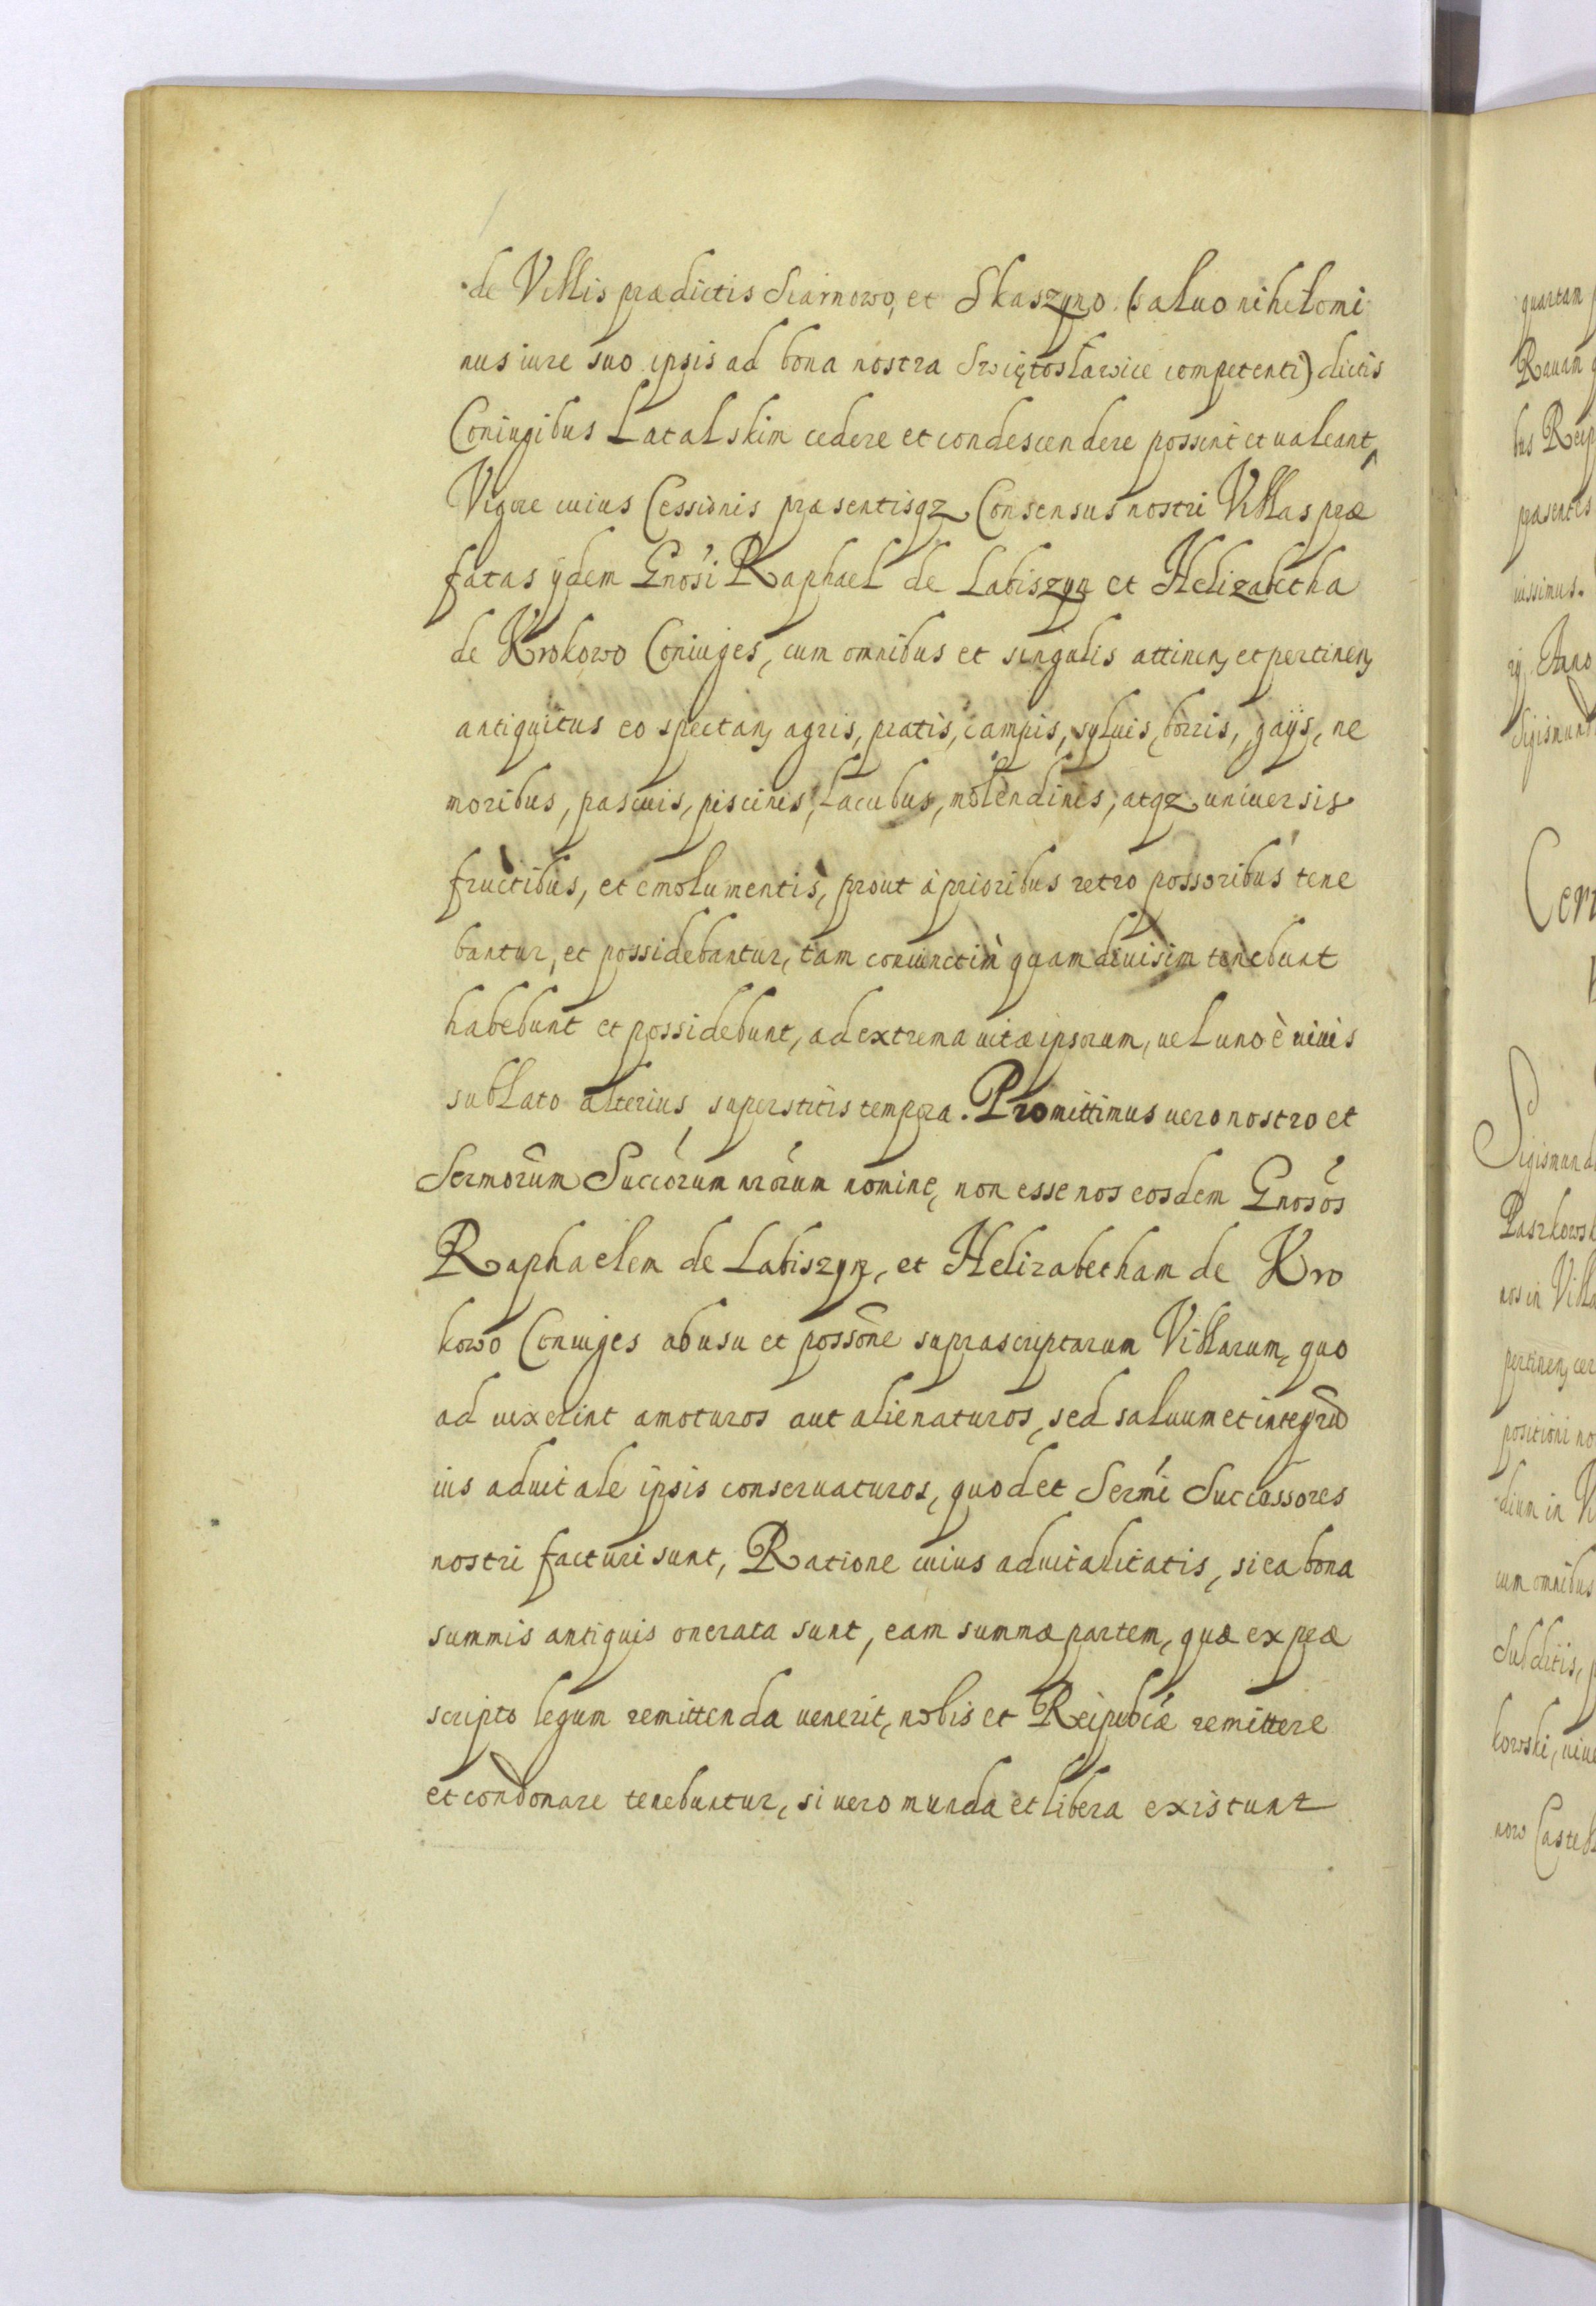 de Villis prædictis Sciarnowo, et Skaszyno (saluo nihilomi
nus iure suo ipsis ad bona nostra Swiętosławice competenti) dictis
Coniugibus Latalskim cedere et condescendere possent et ualeant,
Vigore cuius Cessionis præsentisqz Consensus nostri Villas præ
fatas ijdem Gnosi Raphael de Labiszyn et Helizabetha
de Krokowo Coniuges, cum omnibus et singulis attinen, et pertinen,
antiquitus eo spectan, agris, pratis, campis, syluis, borris, gaijs, ne
moribus, pascuis, piscinis, Lacubus, molendinis, atqz uniuersis
fructibus, et emolumentis, prout à prioribus retro possoribus tene
bantur, et possidebantur, tam coniunctim quam diuisim tenebunt
habebunt et possidebunt, ad extrema uitæ ipsorum, uel uno è uiuis
sublato alterius superstitis tempora. Promittimus uero nostro et
Sermorum Succorum nrorum nomine, non esse nos eosdem Gnosos
Raphaelem de Labiszyn, et Helizabetham de Kro
kowo Coniuges ab usu et possone suprascriptarum Villarum, quo
ad uixerint amoturos aut alienaturos, sed saluum et integrũ
ius aduitale ipsis conseruaturos, quod et Sermi Successores
nostri facturi sunt, Ratione cuius aduitalitatis, si ea bona
summis antiquis onerata sunt, eam summæ partem, quæ ex præ
scripto legum remittenda uenerit, nobis et Reipubcæ remittere
et condonare tenebuntur, si uero munda et libera existunt
quartan
Rauam
bus Reip
præsentes
uissimus.
rij Anno
Sigismund
Cen
Sigismund
Paszkowsk
nos in Villa
pertinen, cer
positioni no
dium in V
cum omnibus
Subditis,
kowski, uiue
now Castell